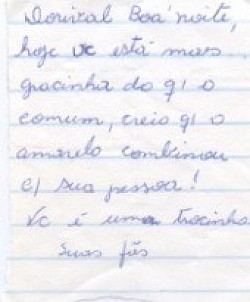 Dorival Boa noite,
hoje vc está mais
gracinha do q1 o
comum, creio q1 o
amarelo combinou
c/ sua pessoa!
Vc é uma trocinha
Suas fãs